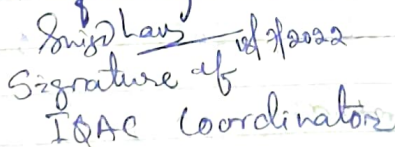 12/7/2022
Signature of
IQAC Coordinator